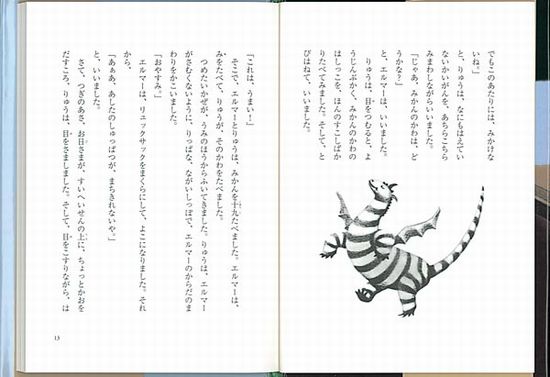 でもこのあたりには、みかけな
いね。」
と、りゅうは、なにもはえてい
ないかいがんを、あちらこちら
みまわしながらいいました。
「じゃあ、みかんのかわは、ど
うかな?」
と、エルマーは、いいました。
りゅうは、目をつむると、よ
うじんぶかく、みかんのかわの
はしっこを、ほんのすこしばか
りたべてみました。そして、と
びはねて、いいました。
「これは、うまい!」
そこで、エルマーとりゅうは、みかんを十九たべました。エルマーは、
みをたべて、りゅうが、そのかわをたべました。
つめたいかぜが、うみのほうからふいてきました。りゅうは、エルマー
がさむくないように、りっぱな、ながいしっぽで、エルマーのからだのま
わりをかこいました。
「おやすみ。」
エルマーは、リュックサックをまくらにして、よこになりました。それ
から、
「あぁあ、あしたのしゅっぱつが、まちきれないや。」
と、いいました。
さて、つぎのあさ、お日さまが、すいへいせんの上に、ちょっとかおを
だすころ、りゅうは、目をさましました。そして、目をこすりながら、は
13